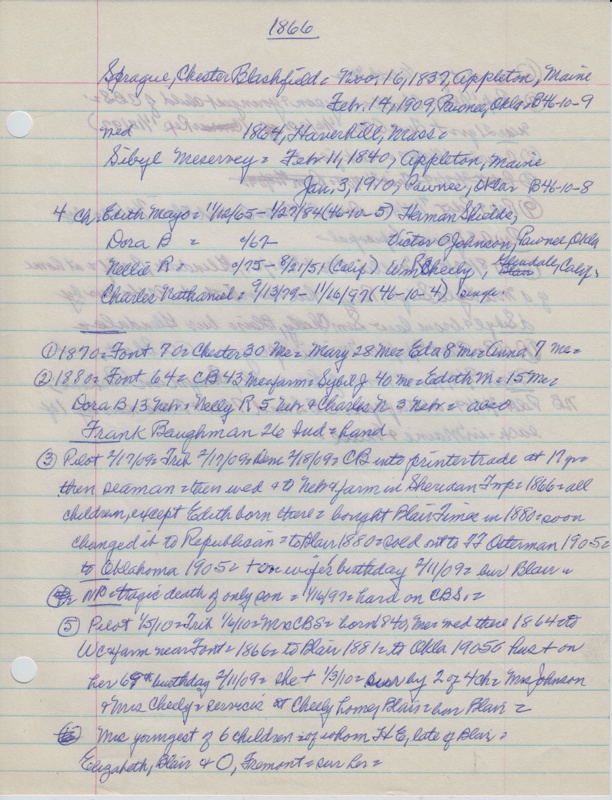 1866
Sprague, Chester Blashfield = Nov. 16, 1837, Appleton, Maine
Feb. 14, 1909, Pawnee, Okla. B46-10-9
wed 1864, Haverhill, Mass =
Sibyl Meservey = Feb 11, 1840, Appleton, Maine
Jan, 3, 1910, Pawnee, Okla B46-10-8
4 ch. Edith Mayo = 1/20/65 - 1/27/84 (46-10-5) Herman Shields,
Dora B = 0/67 - Victor O Johnson, Pawnee, Okla
Nellie R = 0/75 - 8/21/51 (Calif) Wm R Cheely, Glendale, Calif,
Charles Nathaniel = 9/13/79 - 11/16/97 (46-10-4) single.
① 1870 = Font 70 = Chester 30 Me = Mary 28 Me = Eda 8 Me = Anna 7 Me =
② 1880 = Font 64 = CB 43 Me farm = Sybel J 40 Me = Edith M = 15 Me =
Dora B 13 Neb = Nelly R 5 Neb & Charles N 3 Neb =
Frank Baughman 26 Ind = hand
③ Pilot 2/17/09 = Trib 2/17/09 = Dem 2/18/09 = CB into printer trade at 17 yr =
then seaman = then wed & to Neb & farm in Sheridan Twp = 1866 = all
children, except Edith born there = bought Blair Times in 1880 = soon
changed it to Republican = to Blair 1880 = sold out to FF Osterman 1905 =
to Oklahoma 1905 = + on wife's birthday 2/11/09 = bur Blair =
NP = tragic death of only son = 11/16/97 = hard on CBS =
⑤ Pilot 1/5/10 = Trib 1/6/10 = Mrs CBS = born 1840, Me = wed there 1864 = to
WC & farm near Font = 1866 = to Blair 1881 = to Okla 1905 = hus + on
her 69th birthday 2/11/09 = she + 1/3/10 = sur by 2 of 4 ch = Mrs Johnson
& Mrs Cheely = services at Cheely home, Blair = bur Blair =
Mrs youngest of 6 children = of whom H E, late of Blair =
Elizabeth, Blair & O, Fremont = sur her =